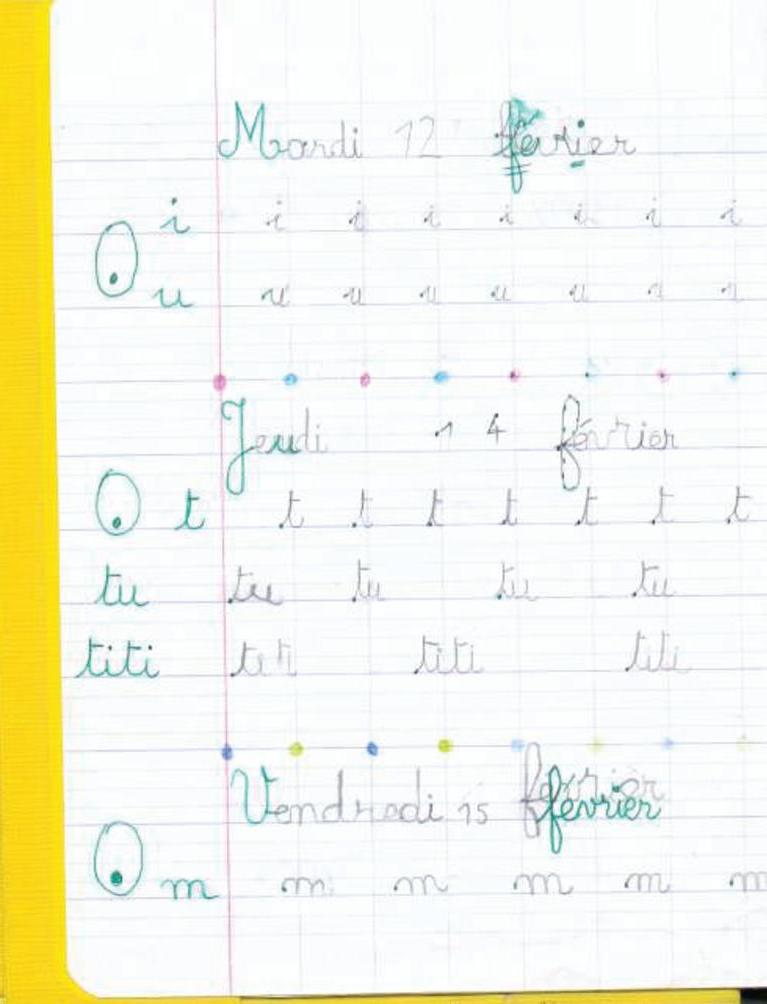 Mardi 12 février
i i i i i i i i
u u u u u u
Jeudi 14 février
t t t t t t t t
tu tu tu tu tu
titi titi titi
Vendredi 15 février février
m m m m m m